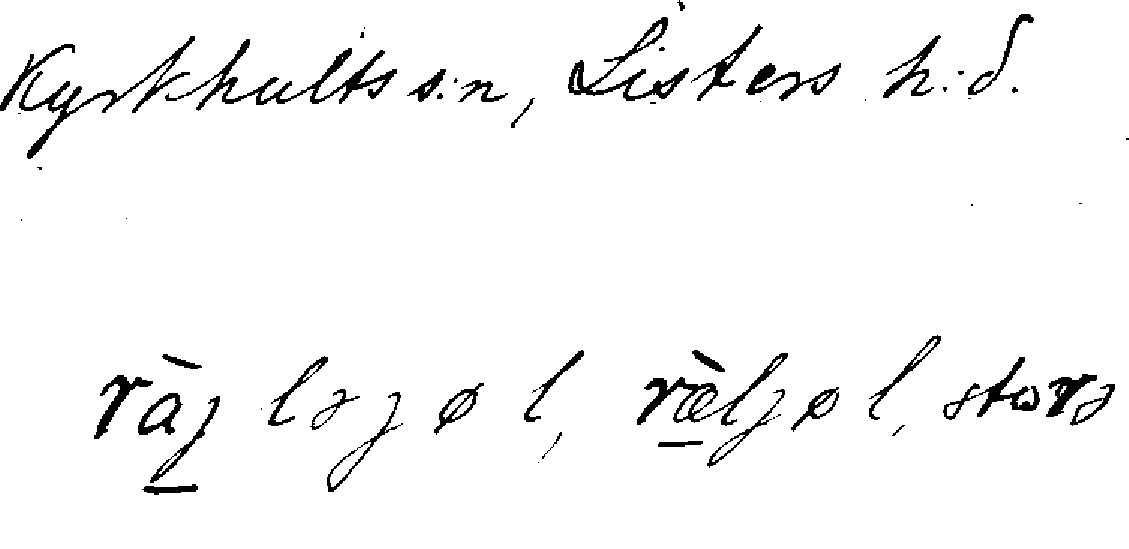 Kyrkhults s:n, Listers h:d.
ràjləjøl, ræ̀ljøl, storə